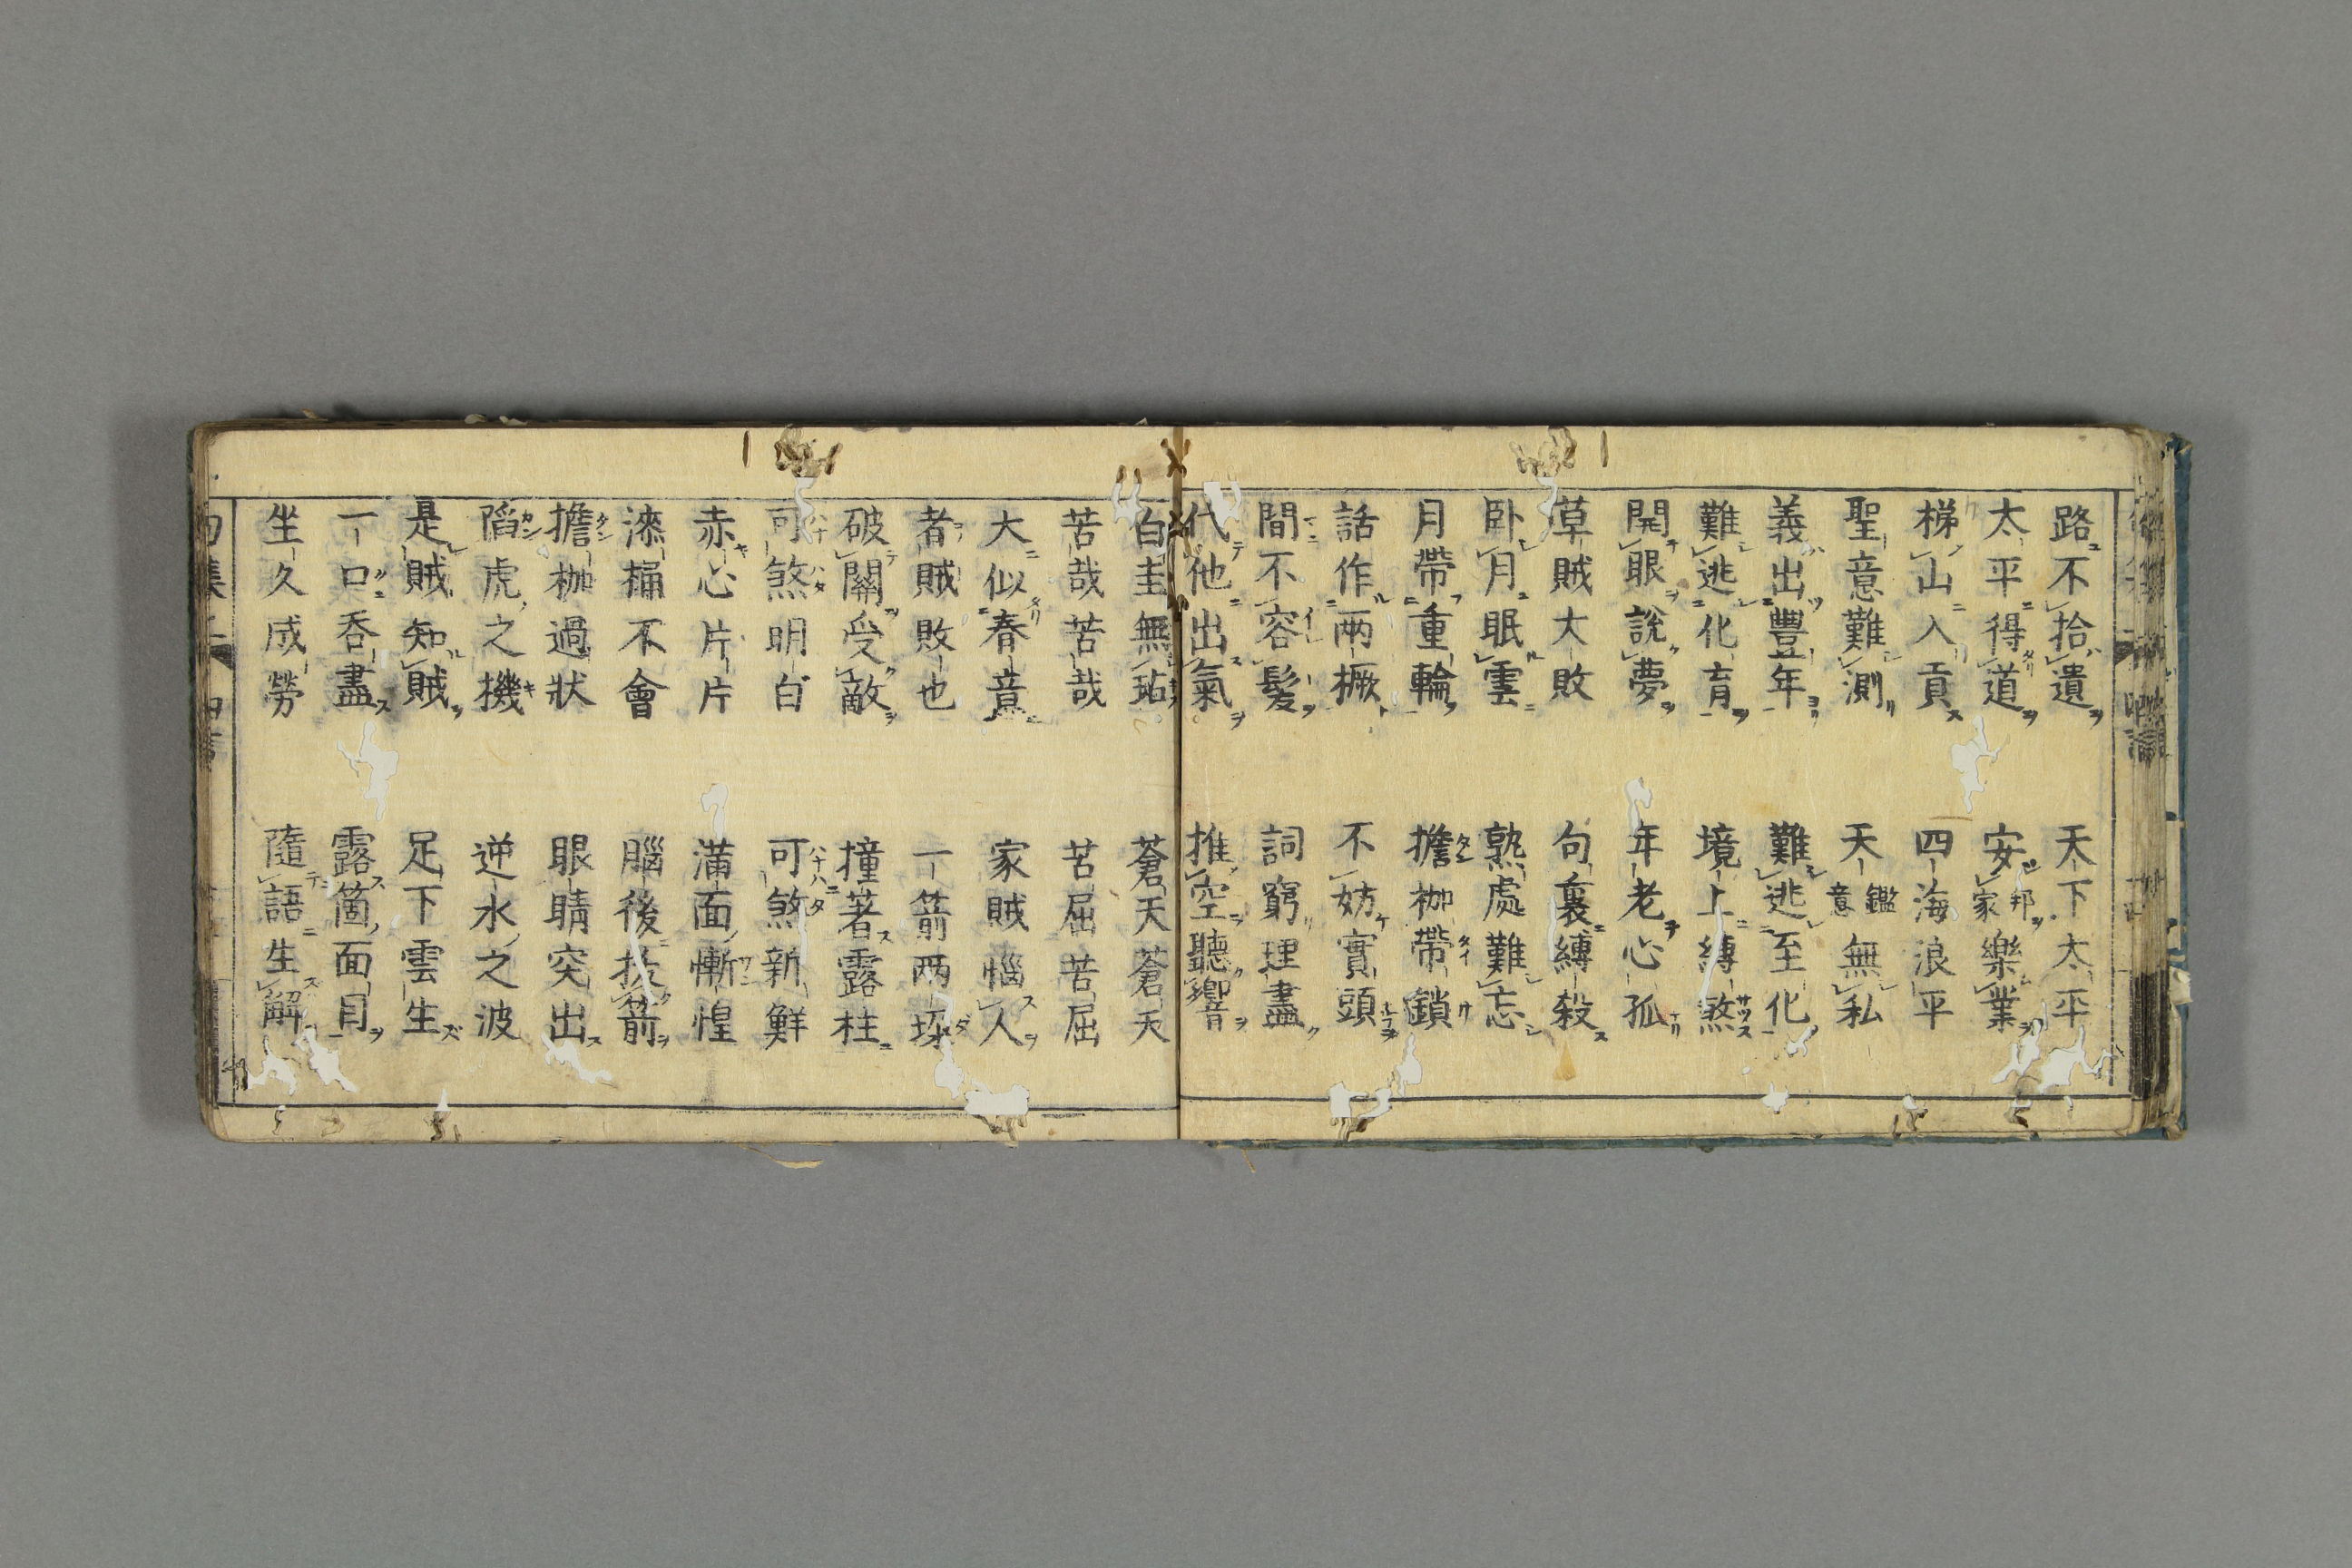 路不拾遺 天下太平
太平得道 安邦家樂業
梯山入貢 四海浪平
聖意難測 天鑑意無私
義出豐年 難逃至化
難逃化育 境上縛煞
開眼說夢 年老心孤
草賊大敗 句裏縛殺
臥月眠雲 熟處難忘
月帶重輪 擔枷帶鎖
話作兩橛 不妨實頭
間不容髮 詞窮理盡
代他出氣 推空聽響
白圭無玷 蒼天蒼天
苦哉苦哉 苦屈苦屈
大似春意 家賊惱人
者賊敗也 一箭兩垜
破關受敵 撞著露柱
可煞明白 可煞新鮮
赤心片片 滿面慚惶
漆桶不會 腦後拔箭
擔枷過狀 眼睛突出
陷虎之機 逆水之波
是賊知賊 足下雲生
一口吞盡 露箇面目
坐久成勞 隨語生解